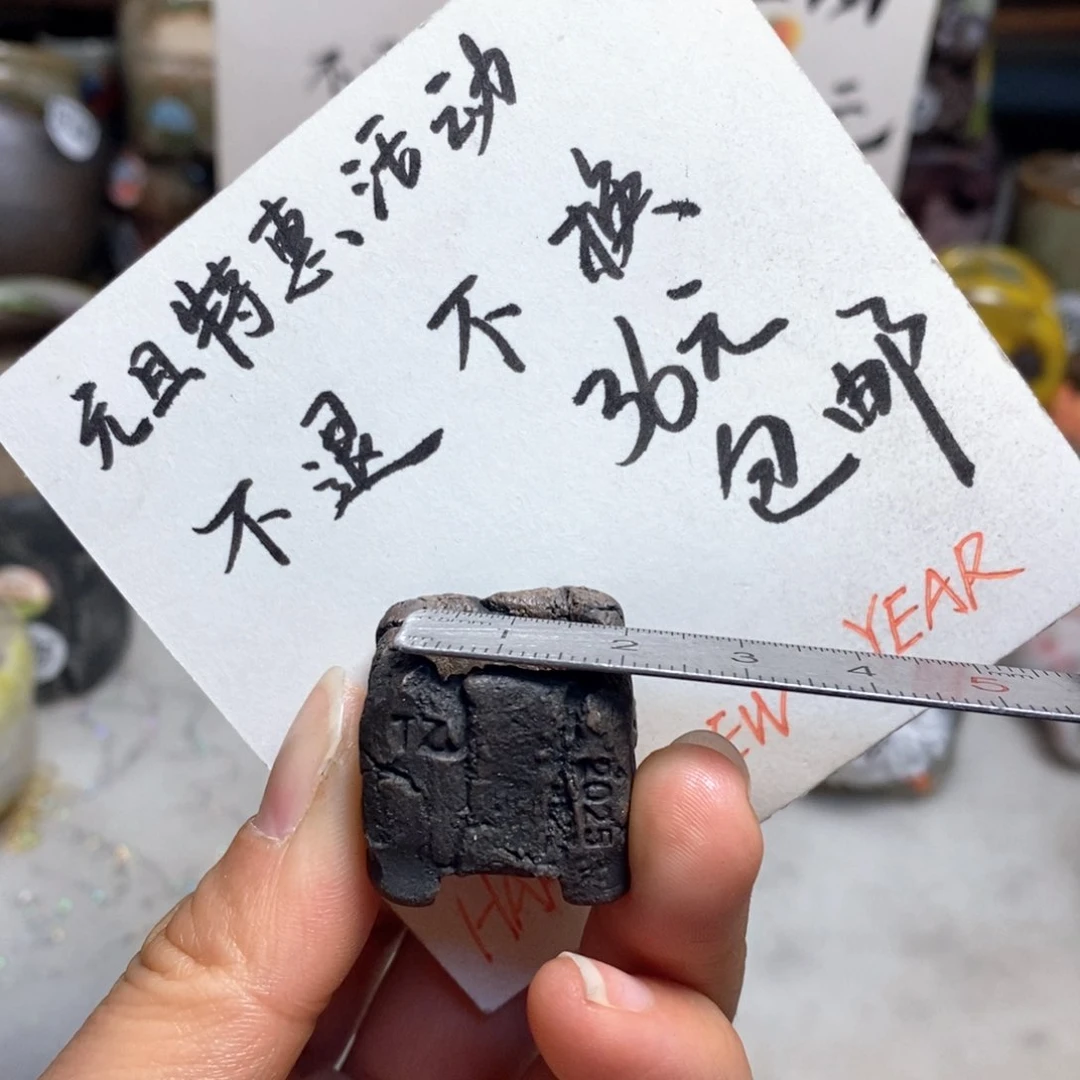 元旦特惠、活动
不退 不 换、
36元
包邮
YEAR
EW
HA
TZ
2025
1 2 3 4 5
mm